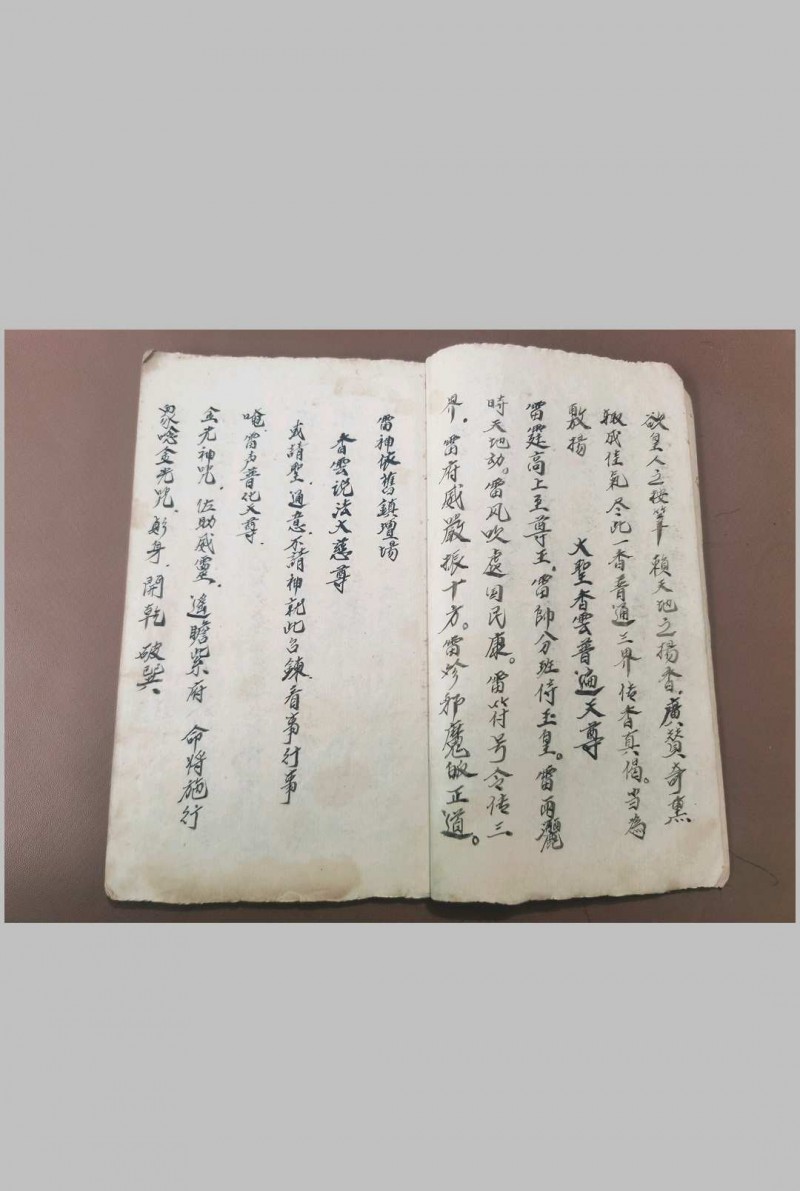 欲皇人之按筆賴天地之揚香.廣贊奇熏
成佳氣尽此一香普通三界传香真偈。当為
敷揚
大聖香雲普遍天尊
雷霆高上至尊王。雷帥分班侍玉皇。雷雨灑
時天地动。雷风吹處囯民康。雷符号令传三
界.雷府威嚴振十方。雷邪魔皈正道。
雷神依舊鎮壇場
香雲说法大慈尊
或請聖.通意.不請神就此召鍊.看事行事
唵.雷声普化天尊.
金光神咒.佐助威靈.遙瞻紫府命将施行
眾唸金光咒.躬身.開乾破巽